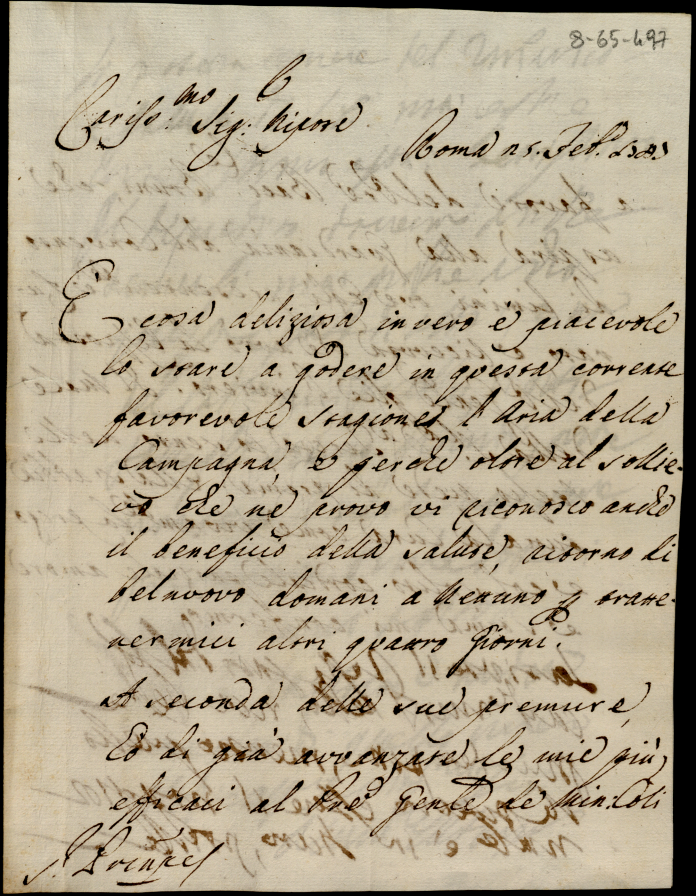 8-65-497
Cariss.mo Sig. Nipote
Roma 25. Feb.
È cosa deliziosa in vero e piacevole
lo stare a godere in questa corrente
favorevole stagione l'Aria della
Campagna, e perche oltre al sollie-
vo che ne provo vi riconosco anche
il beneficio della salute, ritorno di
belnuovo domani a Nettuno p tratte-
nermici altri quattro Giorni.
A seconda delle sue premure,
Ho di già avvanzate le mie più
efficaci al Pne Genle de Min: Coli